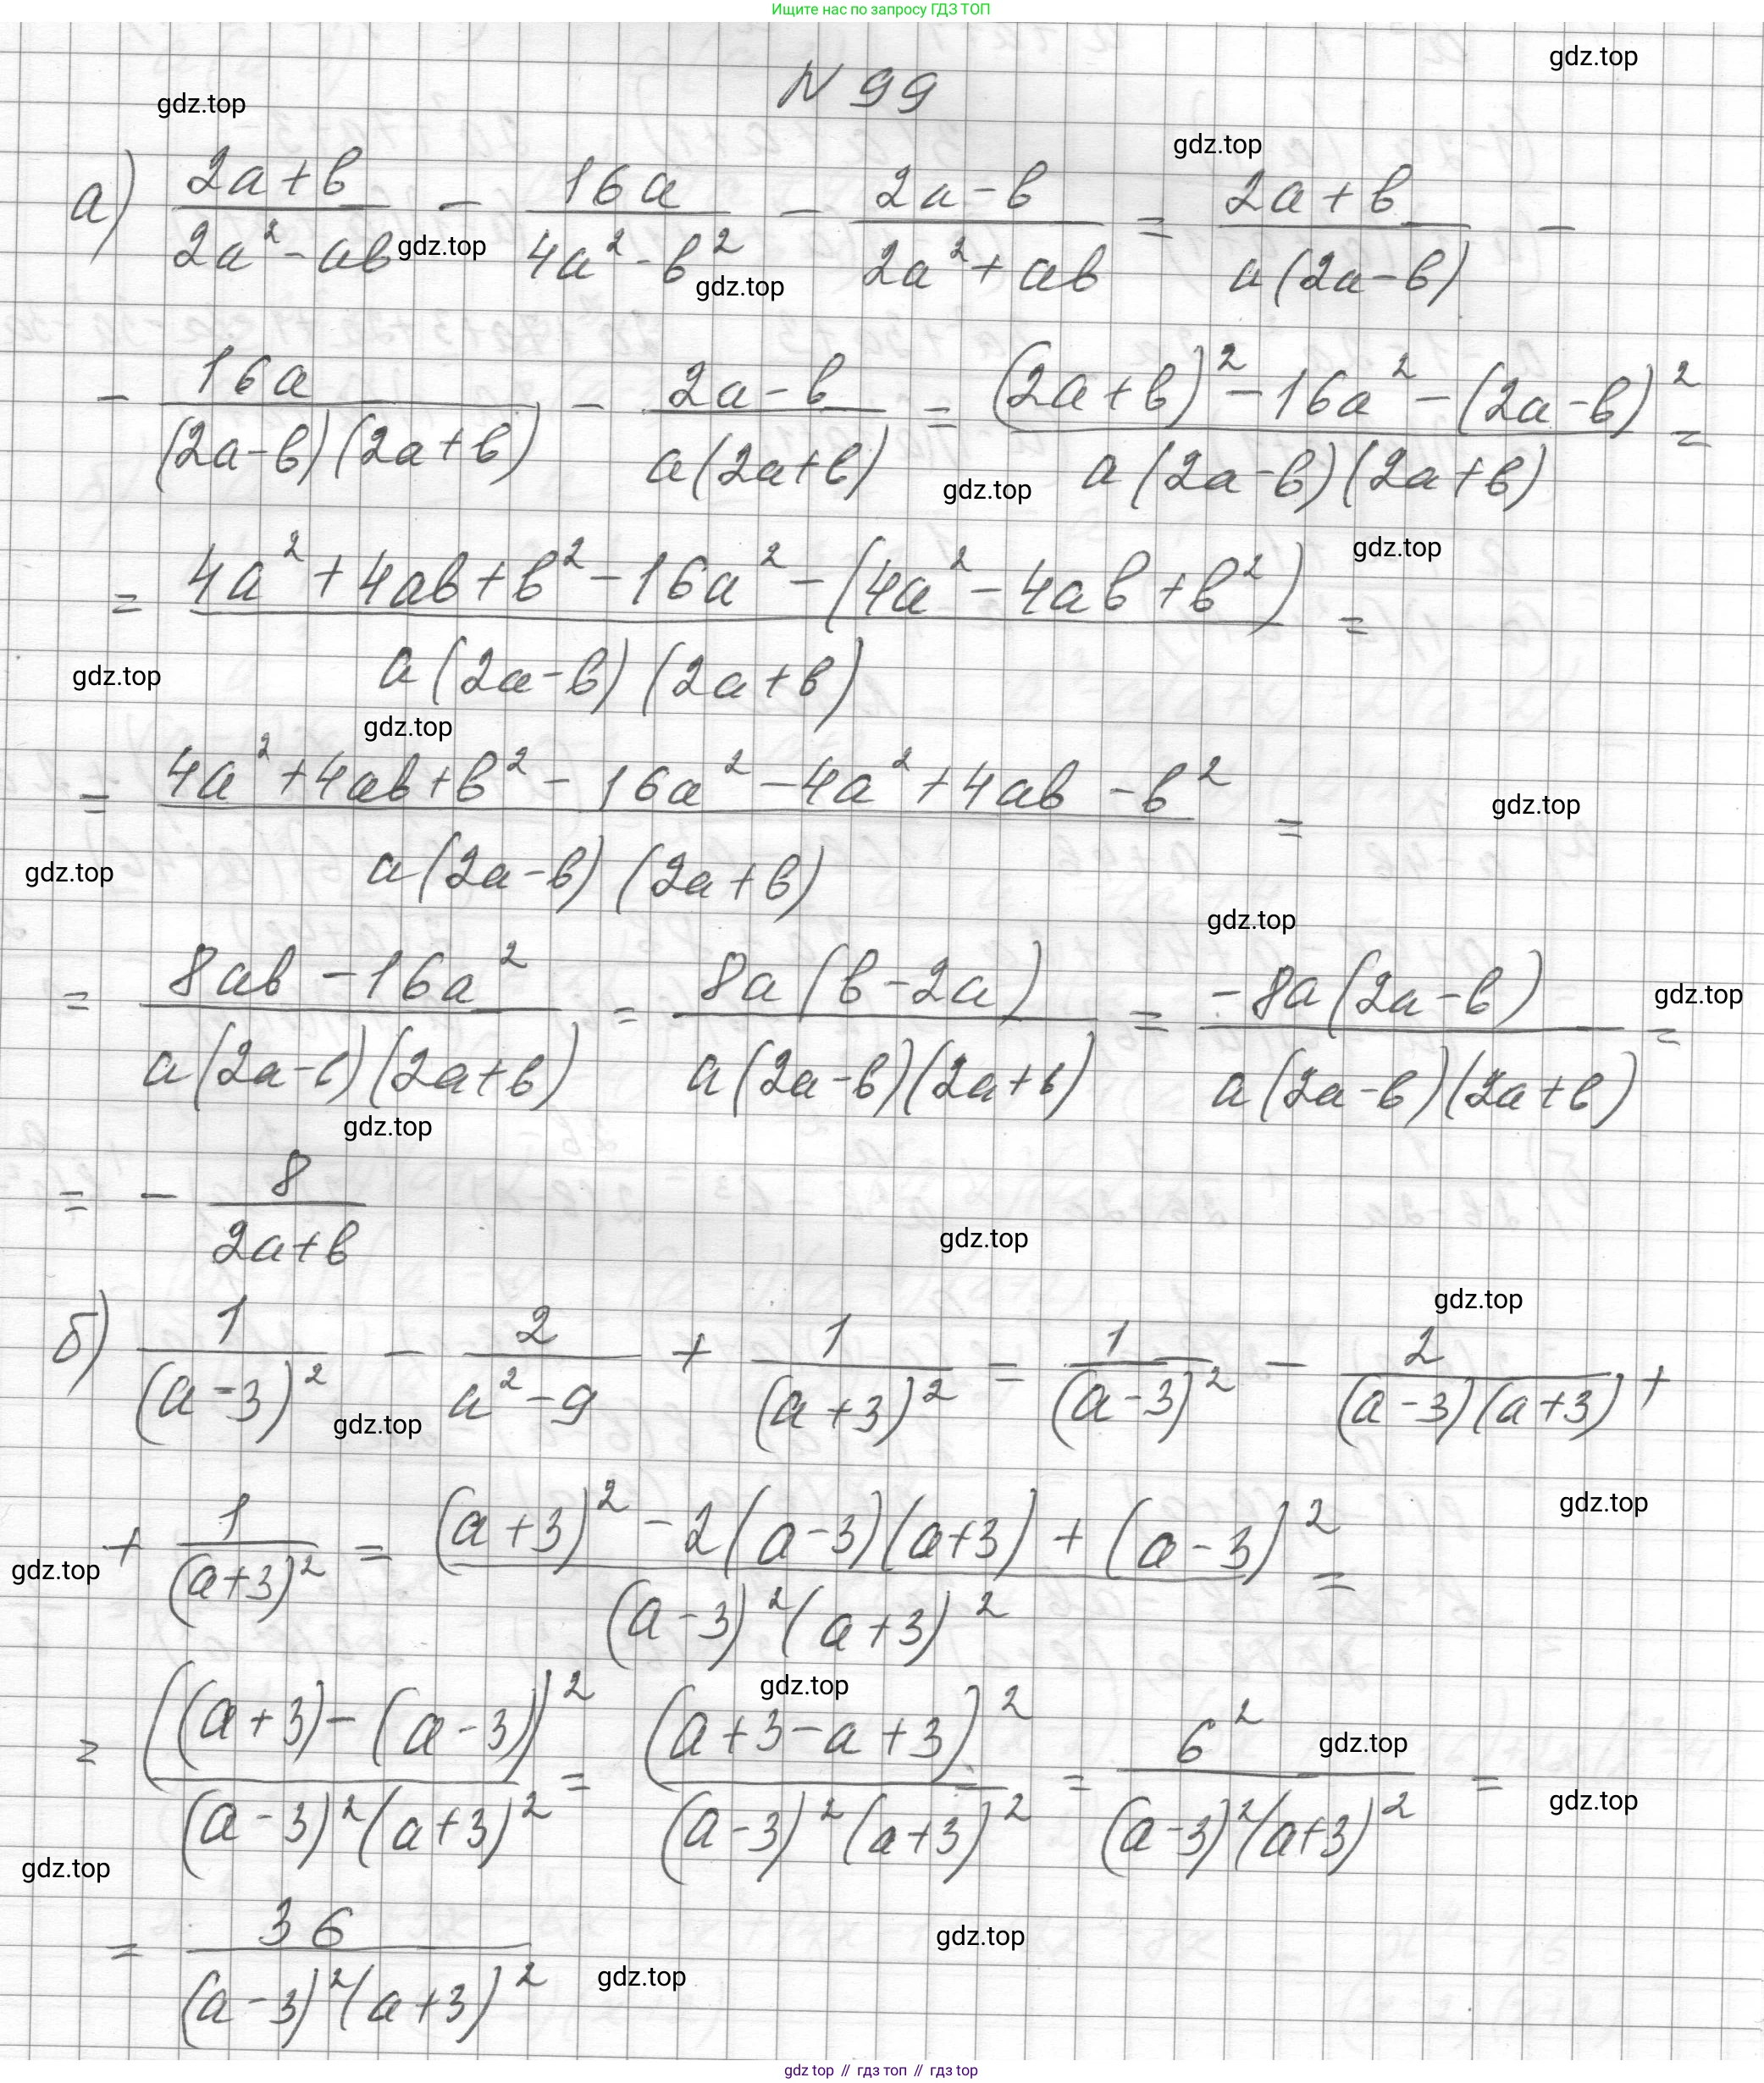 Ищите нас по запросу ГДЗ ТОП
gdz.top
N 99
gdz.top
gdz.top
а) (2a+b)/(2a²-ab) - 16a/(4a²-b²) - (2a-b)/(2a²+ab) = (2a+b)/(a(2a-b)) -
gdz.top
gdz.top
- 16a/((2a-b)(2a+b)) - (2a-b)/(a(2a+b)) = ((2a+b)²-16a²-(2a-b)²)/(a(2a-b)(2a+b)) =
gdz.top
gdz.top
= (4a²+4ab+b²-16a²-(4a²-4ab+b²))/(a(2a-b)(2a+b)) =
gdz.top
gdz.top
= (4a²+4ab+b²-16a²-4a²+4ab-b²)/(a(2a-b)(2a+b)) =
gdz.top
gdz.top
gdz.top
= (8ab-16a²)/(a(2a-b)(2a+b)) = 8a(b-2a)/(a(2a-b)(2a+b)) = -8a(2a-b)/(a(2a-b)(2a+b)) =
gdz.top
gdz.top
= - 8/(2a+b)
gdz.top
gdz.top
б) 1/(a-3)² - 2/(a²-9) + 1/(a+3)² = 1/(a-3)² - 2/((a-3)(a+3)) +
gdz.top
gdz.top
+ 1/(a+3)² = ((a+3)²-2(a-3)(a+3)+(a-3)²)/((a-3)²(a+3)²) =
gdz.top
gdz.top
= ((a+3)-(a-3))²/((a-3)²(a+3)²) = (a+3-a+3)²/((a-3)²(a+3)²) = 6²/((a-3)²(a+3)²) =
gdz.top
gdz.top
gdz.top
= 36/((a-3)²(a+3)²)
gdz.top
gdz.top
gdz top // гдз топ // гдз top